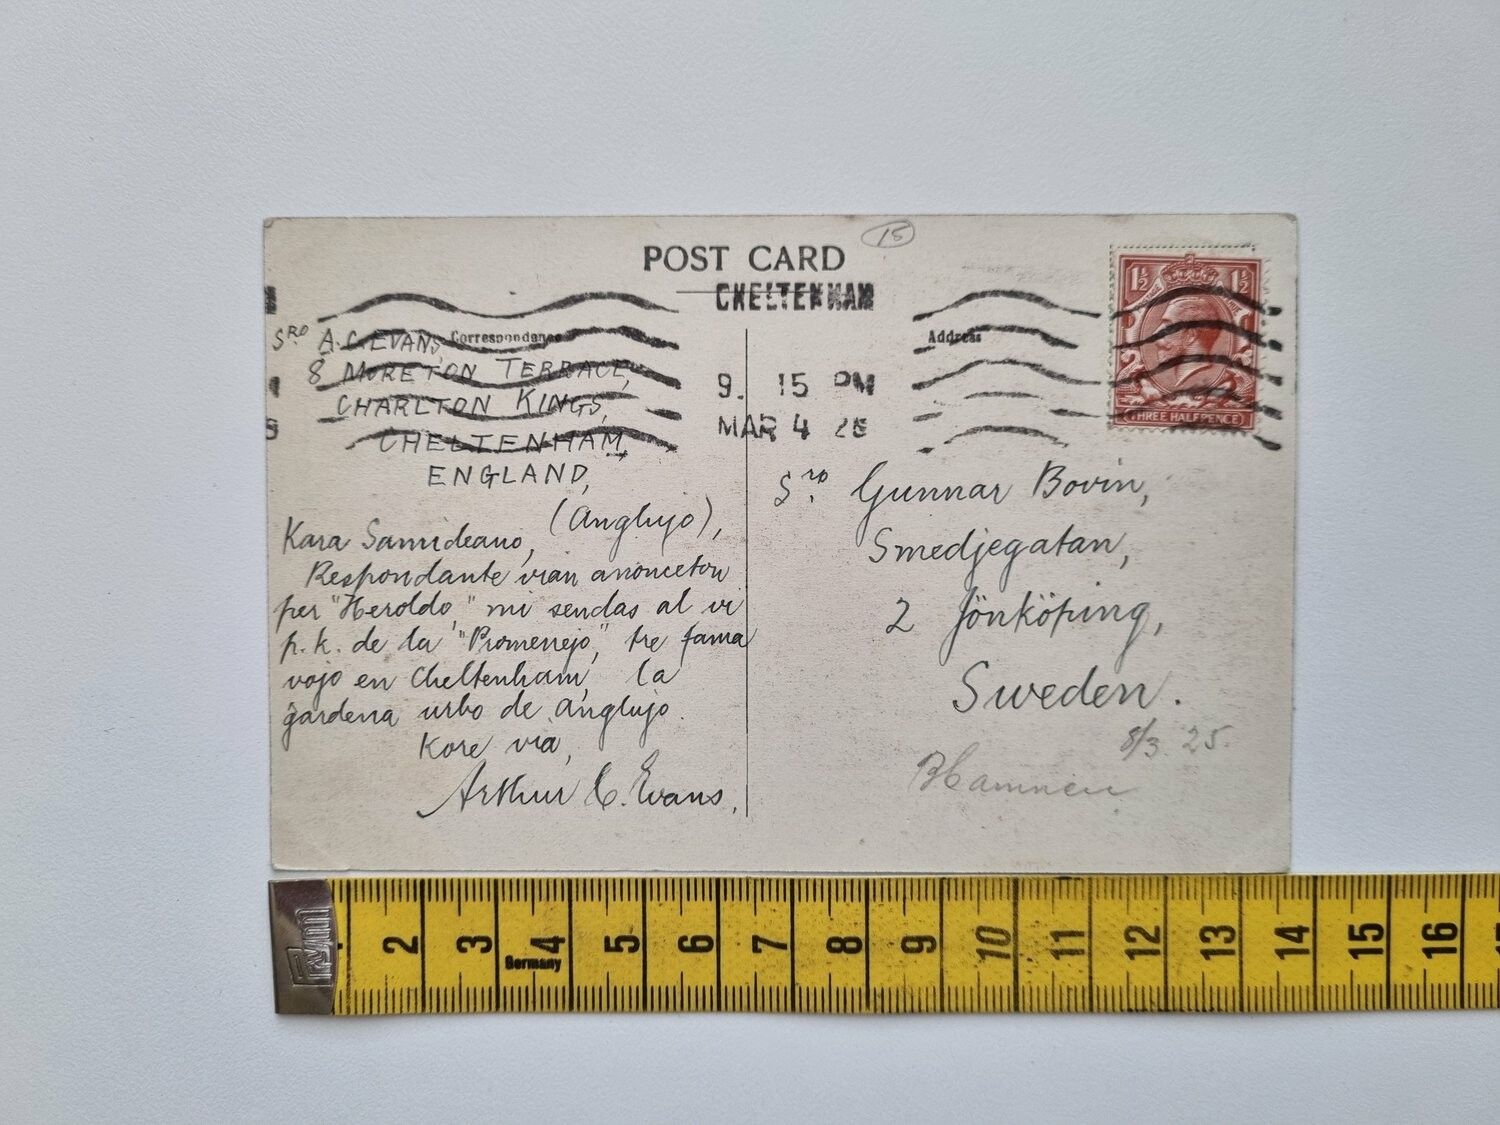 POST CARD
15
CHELTENHAM
Correspondence
Address
9. 15 PM
MAR 4 25
1½ 1½
THREE HALFPENCE
Sro. A.C. EVANS,
8 MORETON TERRACE,
CHARLTON KINGS,
CHELTENHAM,
ENGLAND,
(Anglujo),
Kara Samideano,
Respondante vian anonceton
per "Heroldo," mi sendas al vi
p.k. de la "Promenejo," tre fama
vojo en Cheltenham, la
gardena urbo de Anglujo.
Kore via,
Arthur C. Evans,
Sro. Gunnar Bovin,
Smedjegatan,
2 Jönköping,
Sweden.
8/3 25.
2 3 4 5 6 7 8 9 10 11 12 13 14 15 16
Germany